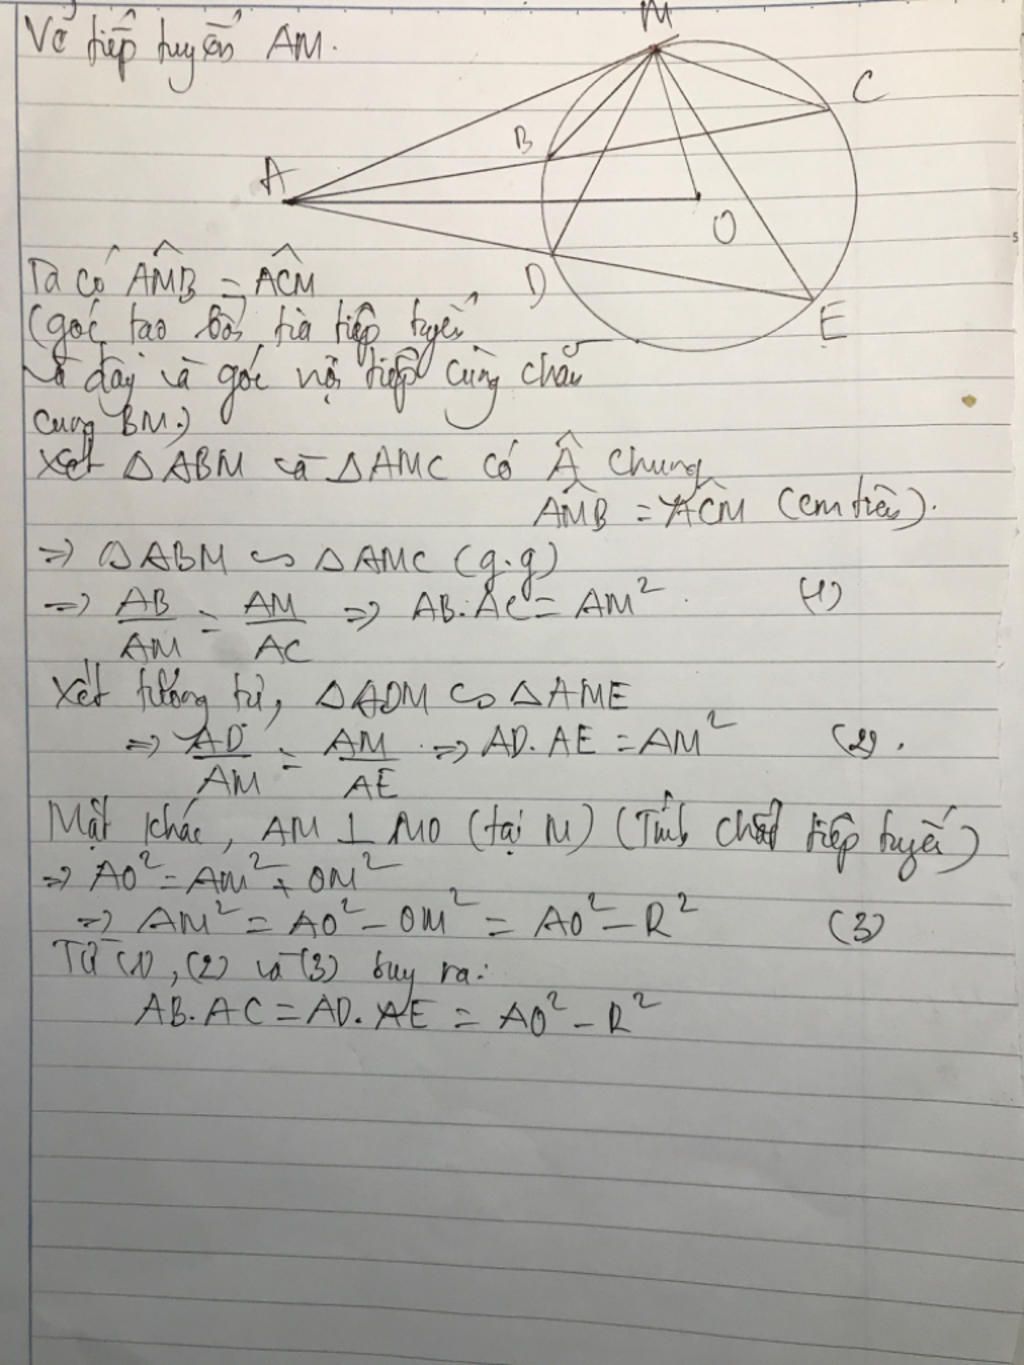 Vẽ tiếp tuyến AM.
M
C
B
A
O
D
E
Ta có AM̂B = AĈM
(góc tạo bởi tia tiếp tuyến
và dây và góc nội tiếp cùng chắn
cung BM.)
Xét △ABM và △AMC có Â chung
AM̂B = AĈM (cm trên).
=> △ABM ∽ △AMC (g.g)
=> AB/AM = AM/AC => AB.AC = AM² (1)
Xét tương tự, △ADM ∽ △AME
=> AD/AM = AM/AE => AD.AE = AM² (2).
Mặt khác, AM ⊥ MO (tại M) (Tính chất tiếp tuyến)
=> AO² = AM² + OM²
=> AM² = AO² - OM² = AO² - R² (3)
Từ (1), (2) và (3) suy ra:
AB.AC = AD.AE = AO² - R²